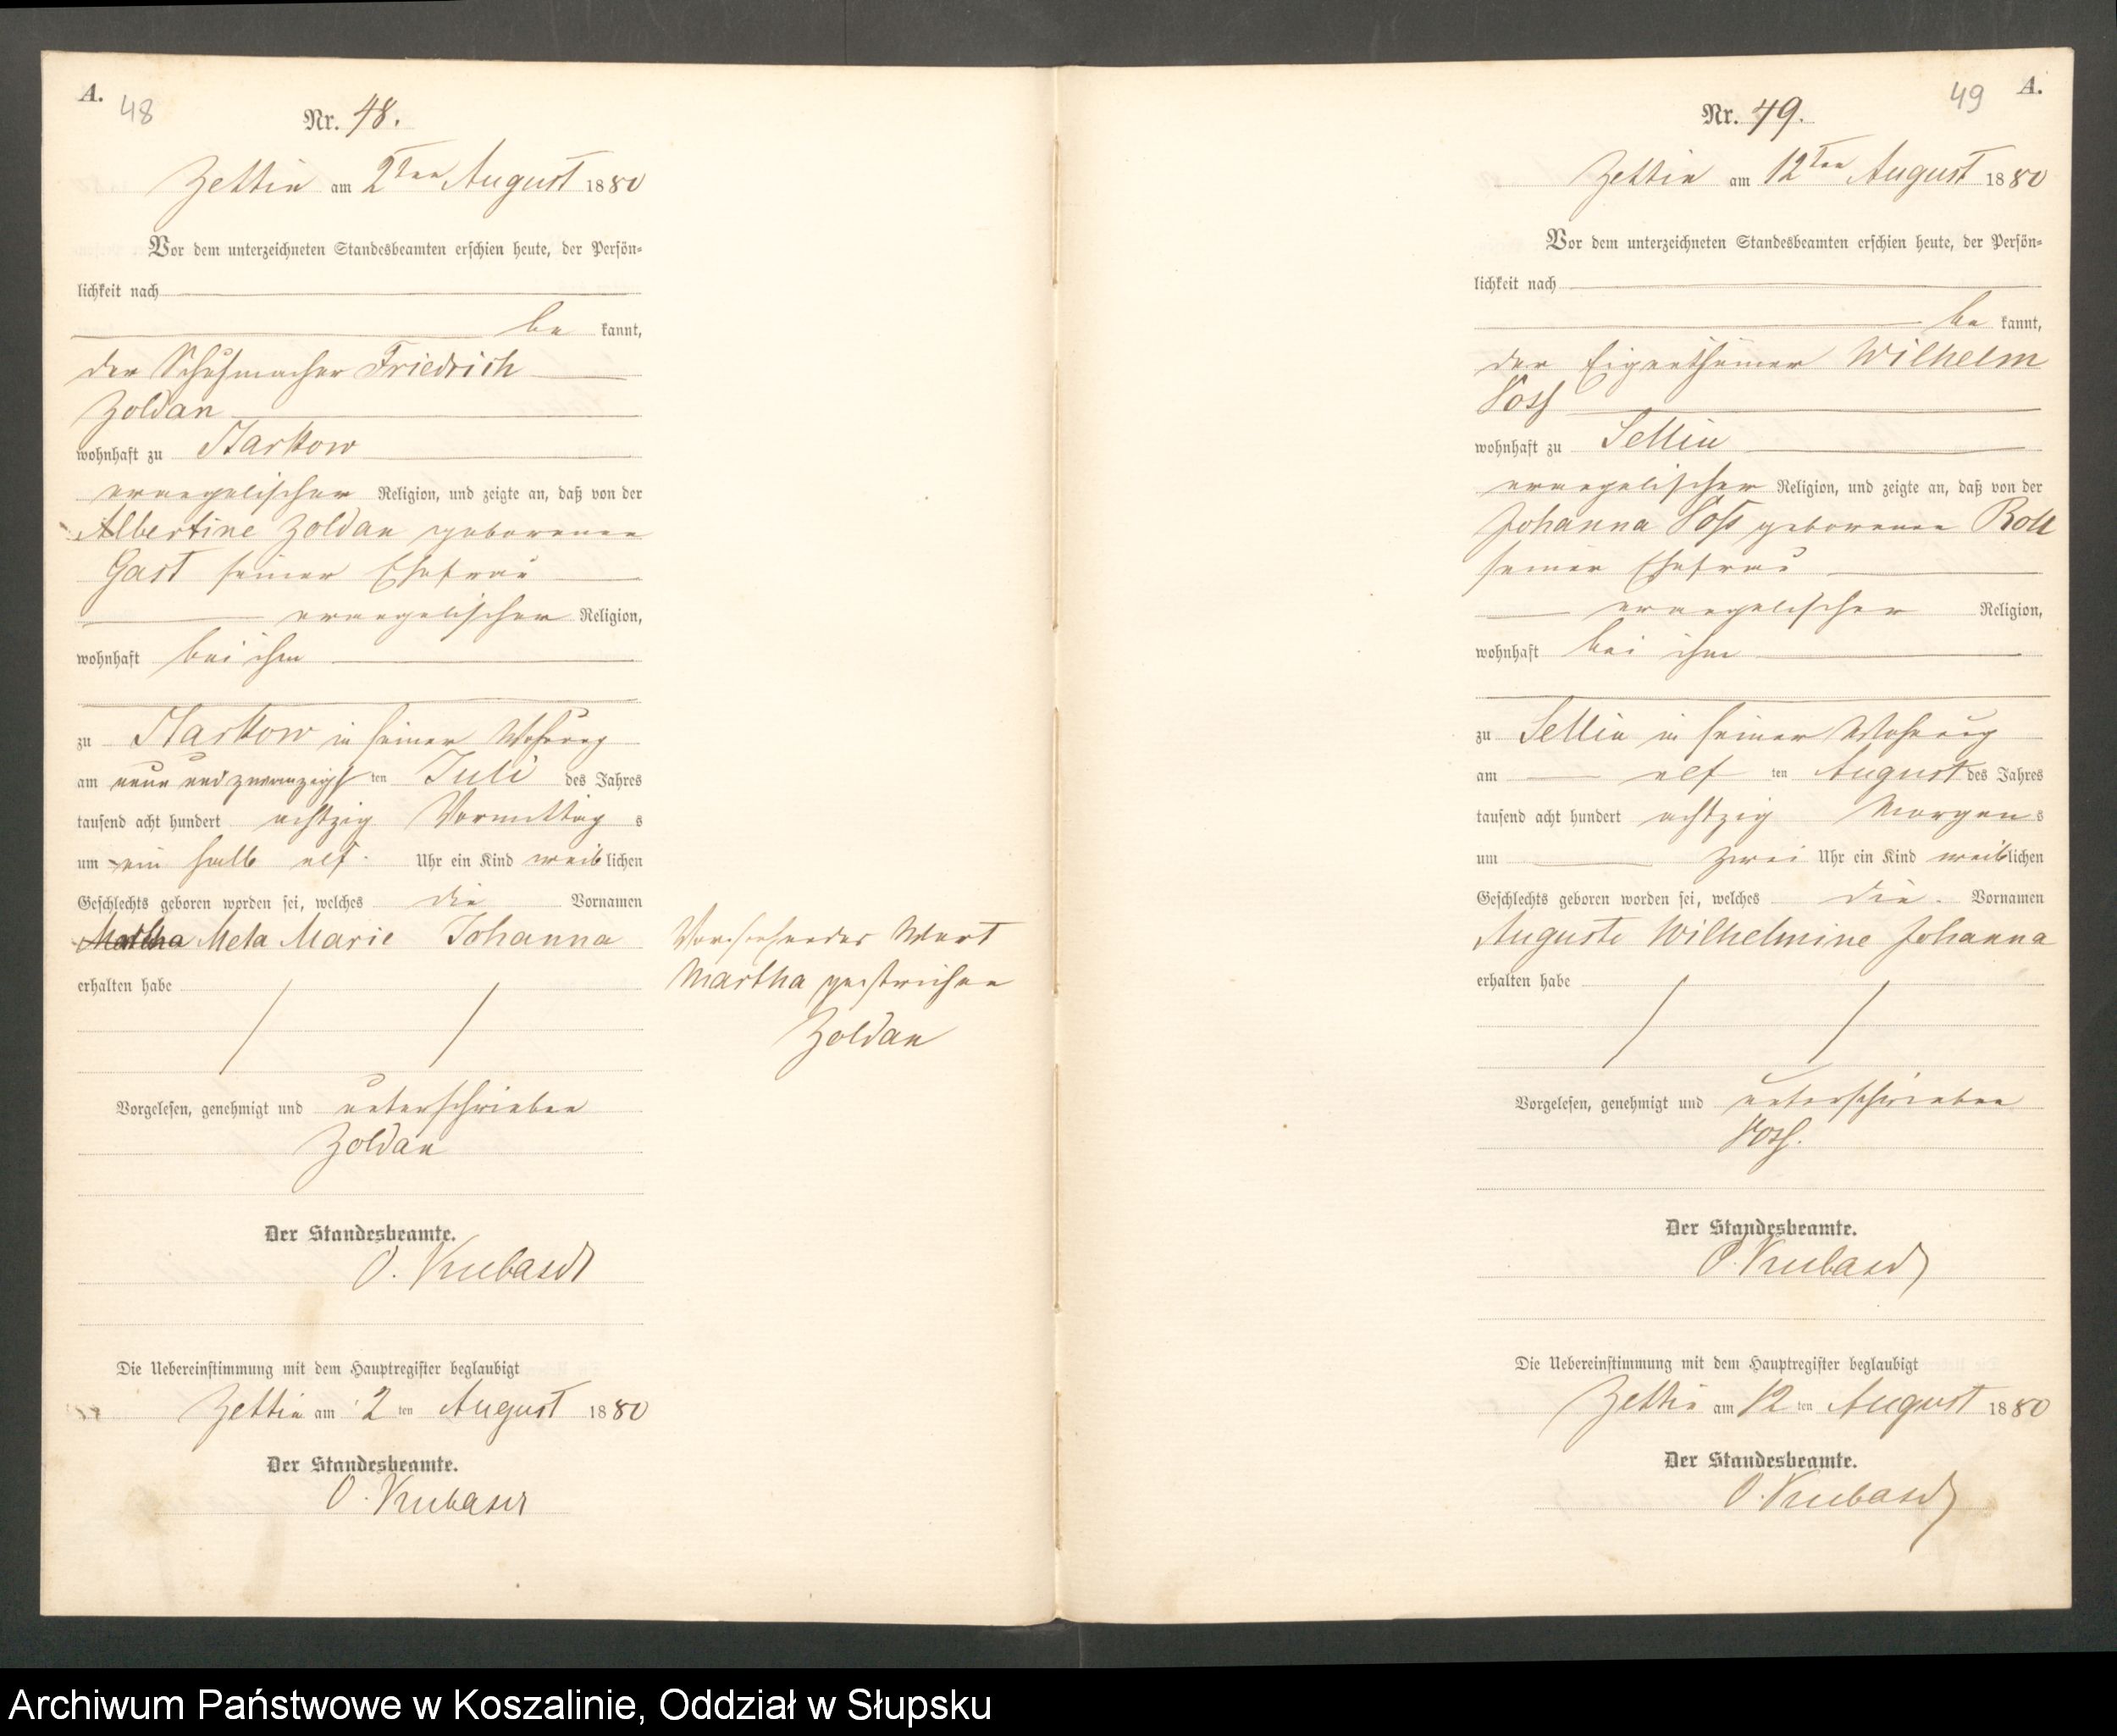 A.
48
Nr. 48.
Zettin am 2ten August 1880
Vor dem unterzeichneten Standesbeamten erschien heute, der Persön-
lichkeit nach
be kannt,
der Schuhmacher Friedrich
Zoldan
wohnhaft zu Starkow
evangelischer Religion, und zeigte an, daß von der
Albertine Zoldan geborenen
Gast seiner Ehefrau
evangelischer Religion,
wohnhaft bei ihm
zu Starkow in seiner Wohnung
am neun und zwanzigsten Juli des Jahres
tausend acht hundert achtzig Vormittags
um ein halb elf Uhr ein Kind weiblichen
Geschlechts geboren worden sei, welches die Vornamen
Martha Meta Marie Johanna
erhalten habe
Vorstehendes Wort
Martha gestrichen
Zoldan
Vorgelesen, genehmigt und unterschrieben
Zoldan
Der Standesbeamte.
O.
Die Uebereinstimmung mit dem Hauptregister beglaubigt
Zettin am 2ten August 1880
Der Standesbeamte.
O.
A.
49
Nr. 49.
Zettin am 12ten August 1880
Vor dem unterzeichneten Standesbeamten erschien heute, der Persön-
lichkeit nach
be kannt,
der Eigenthümer Wilhelm
Voss
wohnhaft zu Sellin
evangelischer Religion, und zeigte an, daß von der
Johanna Voss geborenen
seiner Ehefrau
evangelischer Religion,
wohnhaft bei ihm
zu Sellin in seiner Wohnung
am elf ten August des Jahres
tausend acht hundert achtzig Morgens
um zwei Uhr ein Kind weiblichen
Geschlechts geboren worden sei, welches die Vornamen
Auguste Wilhelmine Johanna
erhalten habe
Vorgelesen, genehmigt und unterschrieben
Voss.
Der Standesbeamte.
O.
Die Uebereinstimmung mit dem Hauptregister beglaubigt
Zettin am 12ten August 1880
Der Standesbeamte.
O.
Archiwum Państwowe w Koszalinie, Oddział w Słupsku